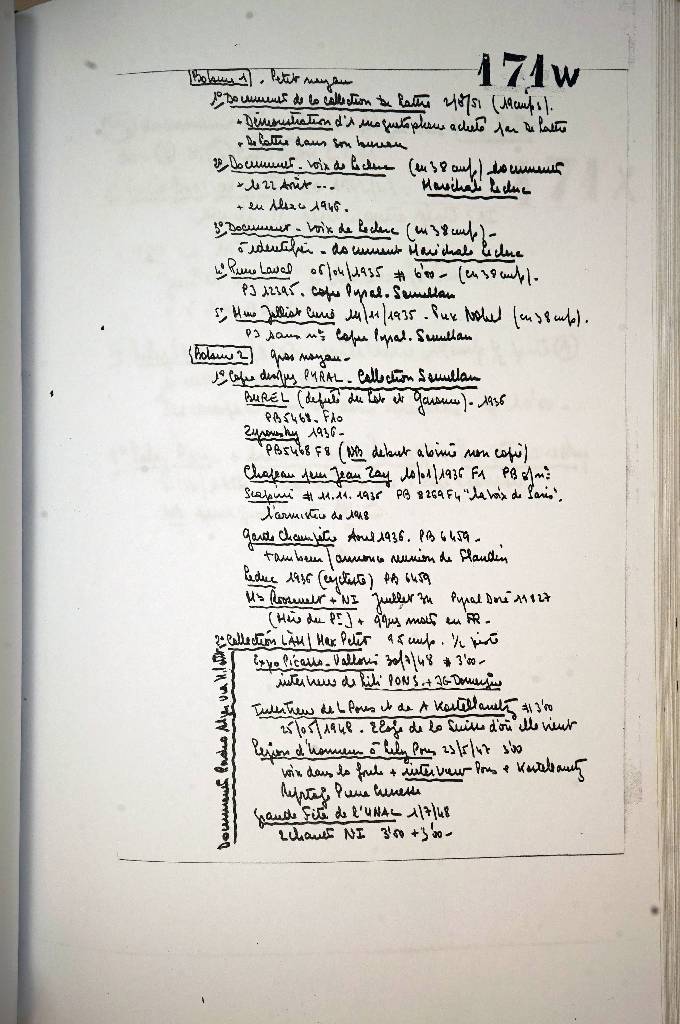 171w
Bobine 1 . Petit noyau
1° Document de la collection De Lattre 2/8/51 (19 cm/s).
+ Démonstration d'1 magnétophone acheté par De Lattre
+ De Lattre dans son bureau
2° Document - Voix de Leclerc (en 38 cm/s) documents
+ le 22 Août --- Maréchale Leclerc
+ en Alsace 1945.
3° Document - Voix de Leclerc (en 38 cm/s) -
à identifier - document Maréchale Leclerc
4° Pierre Laval 05/04/1935 # 6'00 - (en 38 cm/s).
PJ 12395. Copie Pyral. Semullan
5° Mme Jolliot Curie 14/11/1935 - Prix Nobel (en 38 cm/s).
PJ sans n° Copie Pyral. Semullan
Bobine 2 gros noyau -
1° Copie disques PYRAL - Collection Semullan
BUREL (député du Lot et Garonne) - 1936
PB5468. F10
Zyromsky 1936 -
PB5468 F8 (NB début abimé non copié)
Chapeau pour Jean Zay 10/01/1936 F1 PB s/n°
Scapini # 11.11.1936 PB 8269 F4 "la Voix de Paris".
l'armistice de 1918
Garde Champêtre Avril 1936. PB 6459 -
+ tambour / annonce réunion de Flandin
Leduc 1936 (cycliste) PB 6459
Ms Roosevelt + NI Juillet 34 Pyral Doré 11827
(Mère du Pt) + qques mots en FR -
2° Collection LAM / Max Petit 9 5 cm/s . 1/2 piste
Expo Picasso - Vallauris 30/7/48 # 3'00 -
interview de Lili PONS - + JG Domergue
Interview de L Pons et de A Kostelanetz # 3'00
25/05/1948 - Eloge de la Suisse d'où elle vient
Légion d'honneur à Lily Pons 23/5/47 3'00
Voix dans la foule + interview Pons & Kostelanetz
Reportage Pierre Crenesse
Grande Fête de l'UNAC 1/7/48
2 chants NI 3'00 + 3'00 -
Document Radio